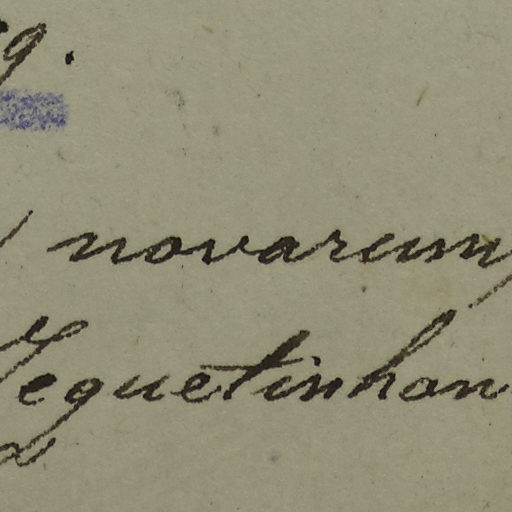 9.
novarum
Jequetinhon